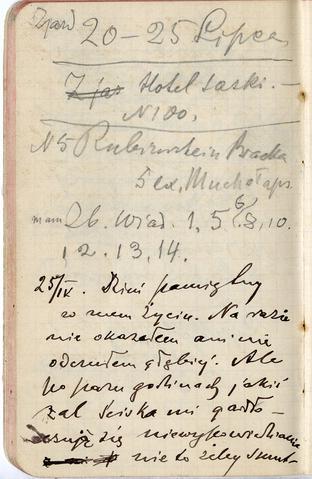 Zjazd
20–25 Lipca
Zjaz Hotel Saski. –
N 100.
N5 Rubinrotstein Bracka
5 ex. Muchołaps
mam Zb. Wiad. 1, 5 6, 8, 10.
12. 13. 14.
25/IX. Dzień pamiętny
w mem życiu. Na razie
nie okazałem ani nie
odczułem głębiej. Ale
po paru godzinach jakiś
żal ściska mi gardło –
czuję się niewypowiedzianie
nie to żeby smut-